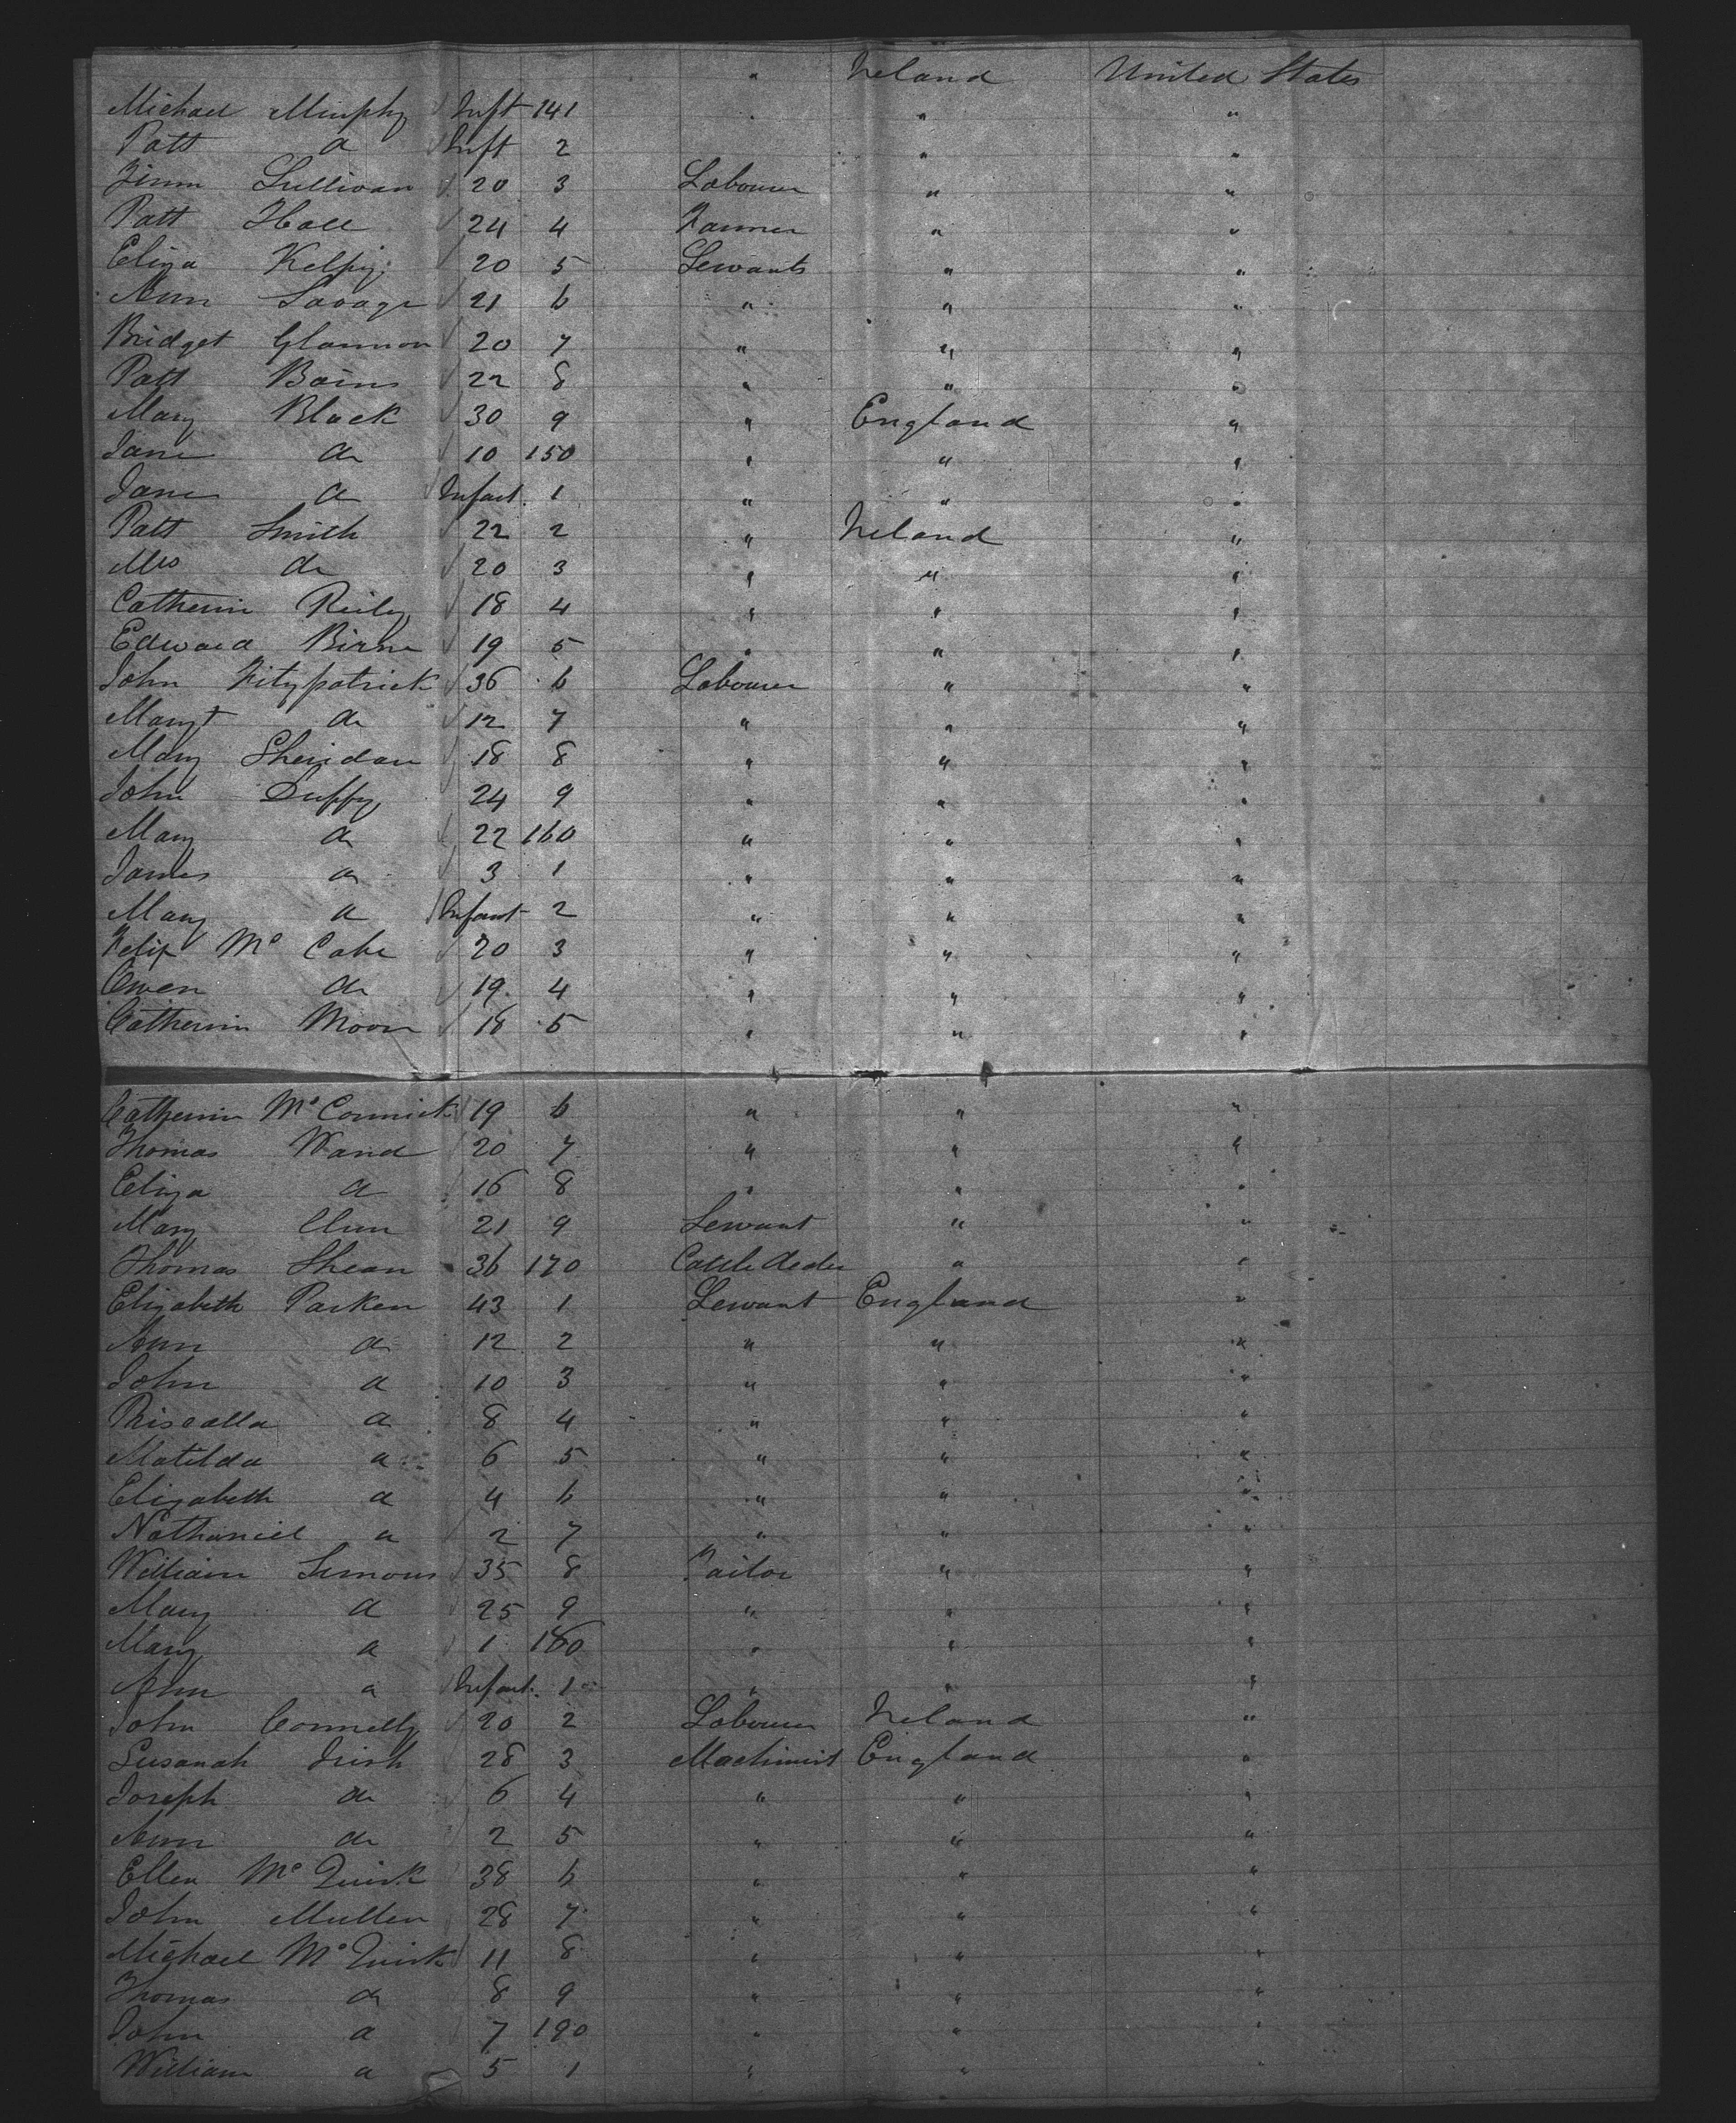 " Ireland United States
Michael Murphy Inft 141 " " "
Patt do Inft 2 " "
Sullivan 20 3 Labourer " "
Patt Hall 24 4 Farmer " "
Eliza 20 5 Servants " "
Ann Savage 21 6 " " "
Bridget Glannon 20 7 " " "
Patt Bains 22 8 " " "
Mary Black 30 9 " England "
Jane do 10 150 " " "
Jane do Infant 1 " " "
Patt Smith 22 2 " Ireland "
Mrs do 20 3 " " "
Catherin Reily 18 4 " " "
Edward Birne 19 5 " " "
John Fitzpatrick 36 6 Labourer " "
Margt do 12 7 " " "
Mary Sheridan 18 8 " " "
John Duffy 24 9 " " "
Mary do 22 160 " " "
James do 3 1 " " "
Mary do Infant 2 " " "
Felix Mc Cabe 20 3 " " "
Owen do 19 4 " " "
Catherin Moore 18 5 " " "
Catherin McCormick 19 6 " " "
Thomas Ward 20 7 " " "
Eliza do 16 8 " " "
Mary 21 9 Servant " "
Thomas Shean 36 170 Cattle " "
Elizabeth Parken 43 1 Servant England "
Ann do 12 2 " " "
John do 10 3 " " "
Priscalla do 8 4 " " "
Matilda do 6 5 " " "
Elizabeth do 4 6 " " "
Nathaniel do 2 7 " " "
William Simons 35 8 Tailor " "
Mary do 25 9 " " "
Mary do 1 180 " " "
Ann do Infant 1 " " "
John Connelly 20 2 Labourer Ireland "
Susanah Irish 28 3 Machinist England "
Joseph do 6 4 " " "
Ann do 2 5 " " "
Ellen Mc Quirk 38 6 " " "
John Mullen 28 7 " " "
Michael McQuirk 11 8 " " "
Thomas do 8 9 " " "
John do 7 190 " " "
William do 5 1 " " "